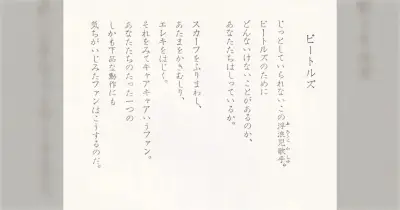 ビートルズ
じっとしていられないこの浮浪児歌手。
ビートルズのために
どんないけないことがあるのか、
あなたたちはしっているか。
スカーフをふりまわし、
あたまをかきむしり、
エレキをはじく。
それをみてキャアキャアいうファン。
あなたたちのたった一つの
しかも下品な動作にも
気ちがいじみたファンはこうするのだ。